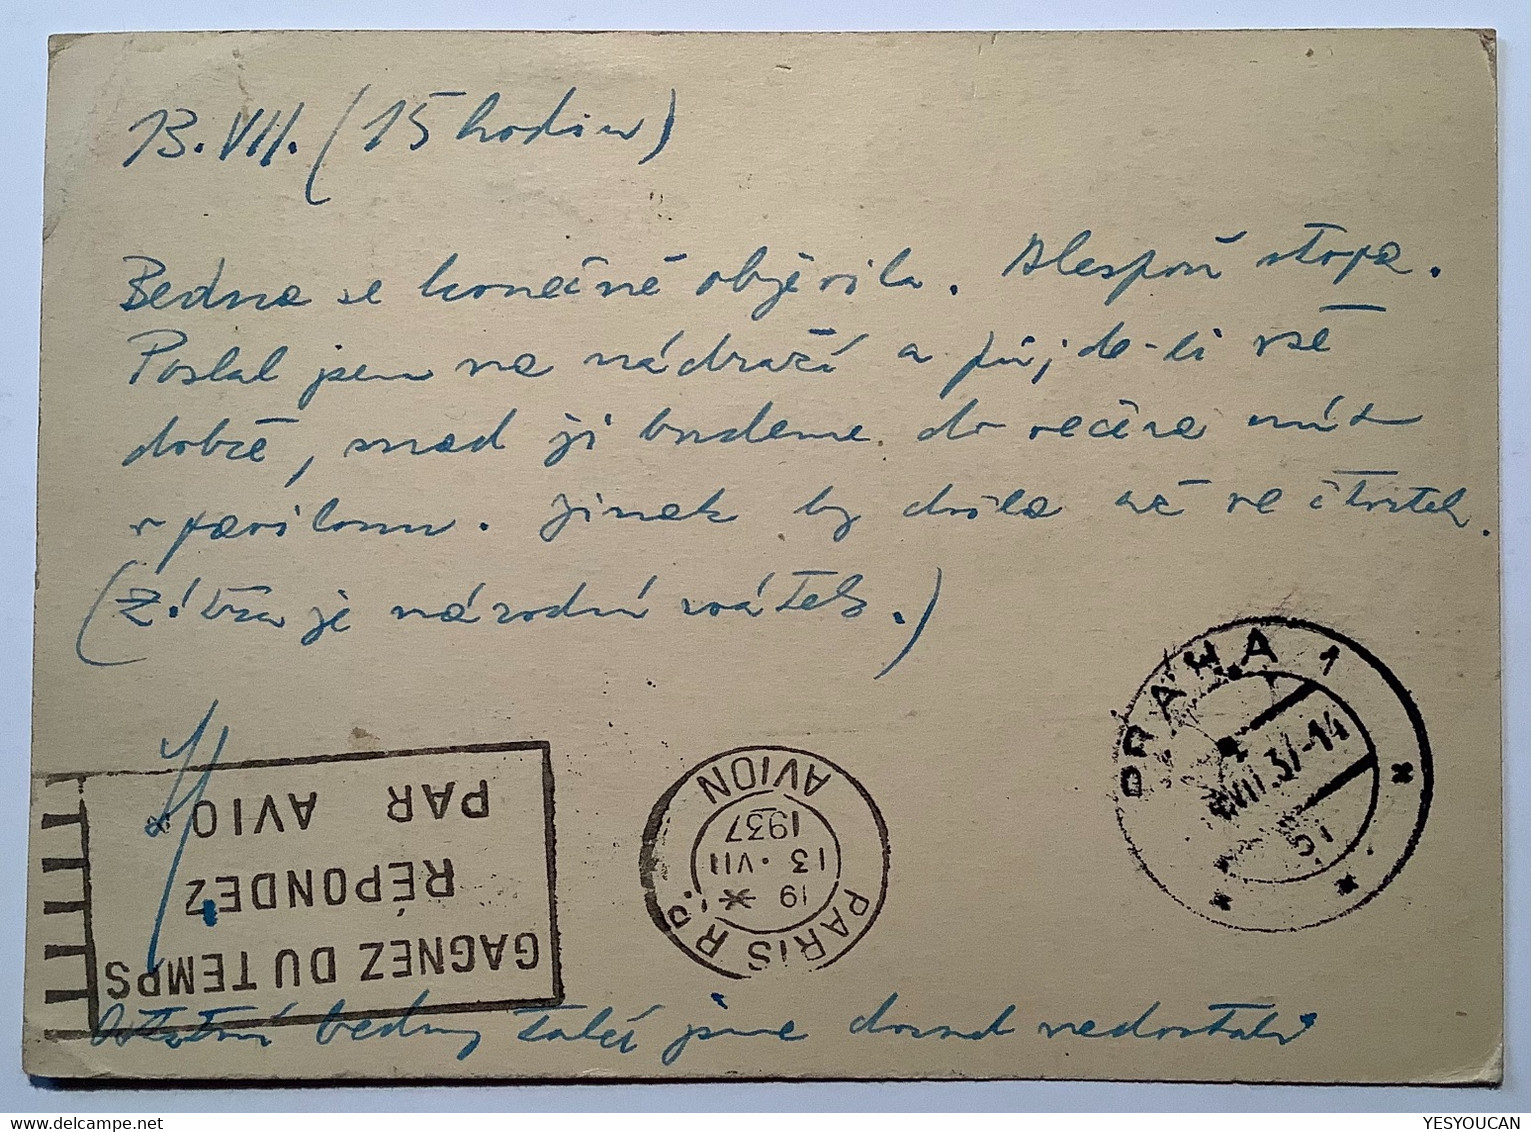 13. VII. (15 hodin)
Bedna se konečně objevila. Alespoň stopa.
Poslal jsem na nádraží a půjde-li vše
dobře, snad ji budeme do večera mít
v pavilonu. Jinak by došla až ve čtvrtek.
(Zítra je národní svátek.)
GAGNEZ DU TEMPS
RÉPONDEZ
PAR AVION
PARIS R.P.
AVION
19
13 . VII
1937
PRAHA 1
VII.37-14
51
Ostatní bedny také jsme dosud nedostali
YESYOUCAN